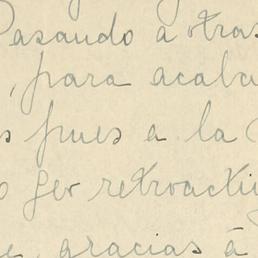 Pasando á otras
, para acaba
s pues a la
o ser retroacti
e, gracias á